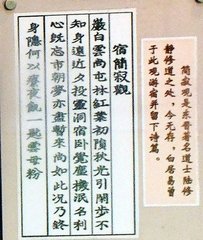 简寂观是东晋著名道士陆修
静修道之处，今无存，白居易曾
于此观游宿并留下诗篇。
宿簡寂觀
巖白雲尚屯林紅葉初隕秋光引閑步不
知身遠近夕投靈洞宿卧覺塵機泯名利
心既忘市朝夢亦盡暫來尚如此況乃終
身隱何以療夜飢一匙雲母粉